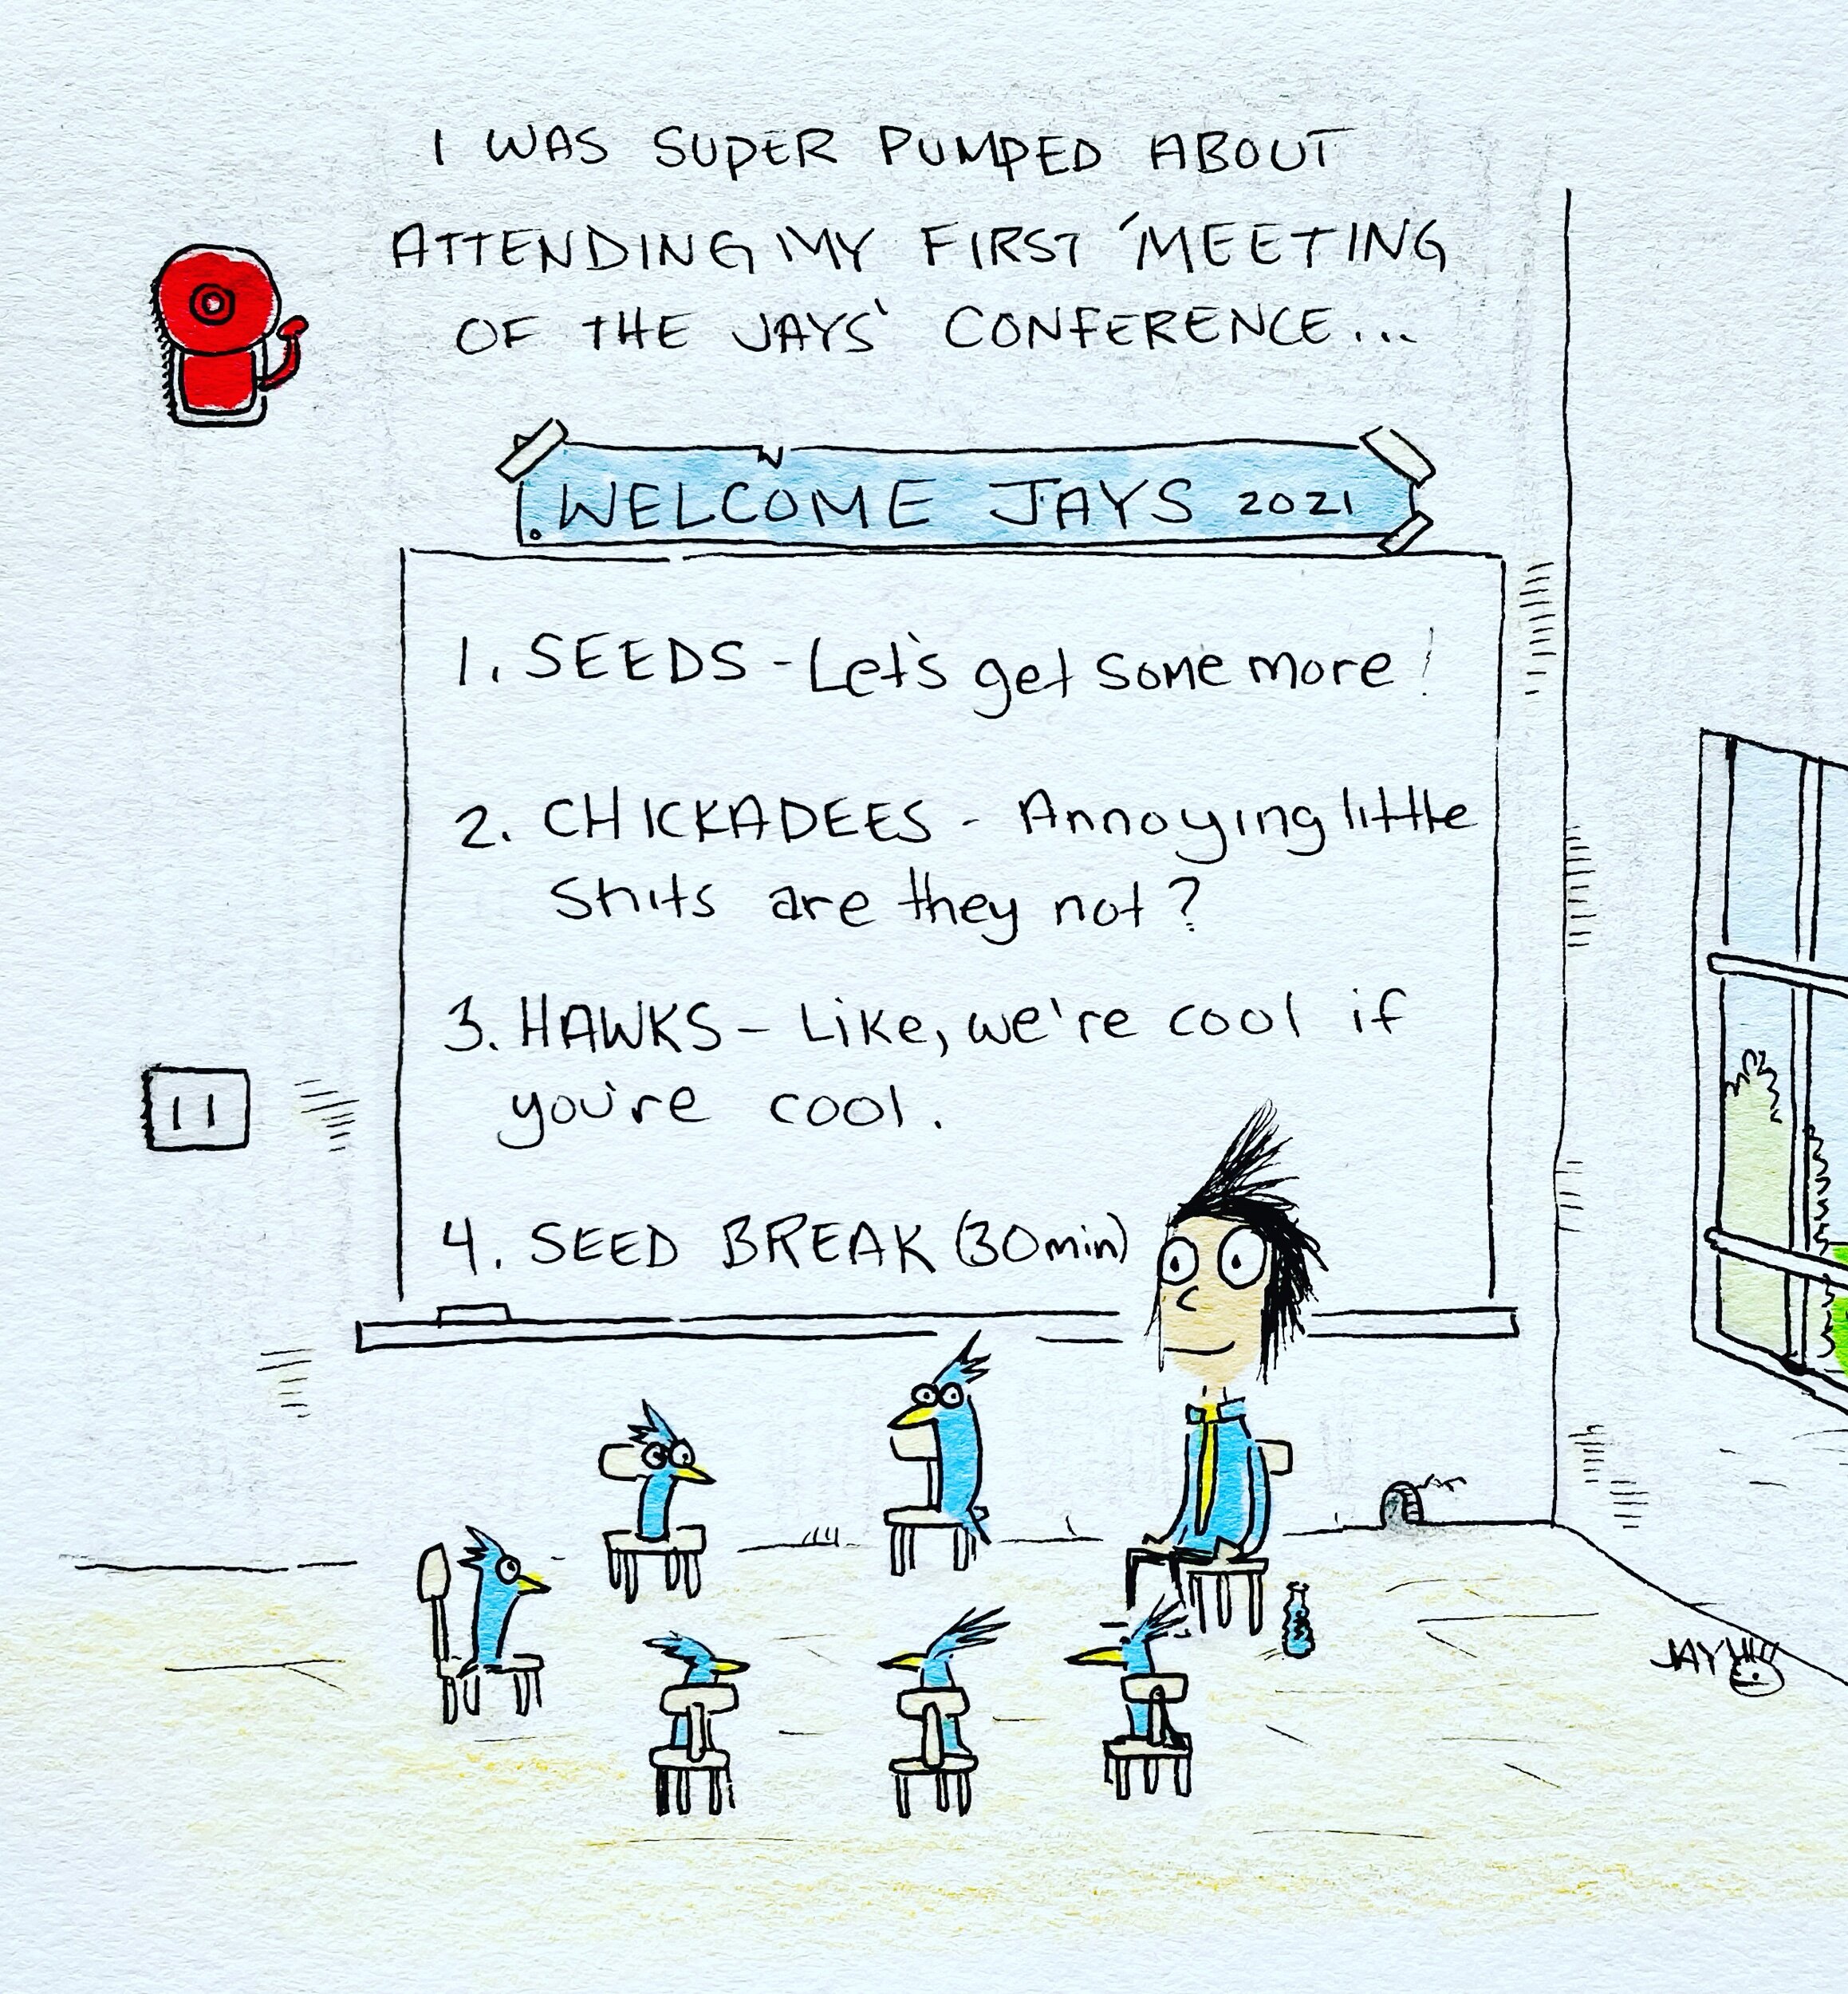 I WAS SUPER PUMPED ABOUT
ATTENDING MY FIRST 'MEETING
OF THE JAYS' CONFERENCE...
WELCOME JAYS 2021
1. SEEDS - Let's get some more!
2. CHICKADEES - Annoying little
shits are they not?
3. HAWKS - Like, we're cool if
you're cool.
4. SEED BREAK (30min)
JAY